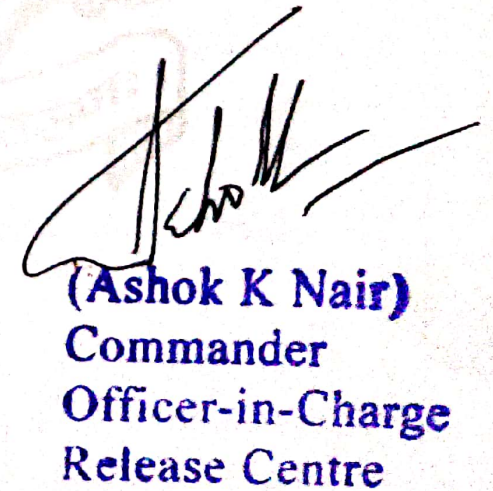 Ashok
(Ashok K Nair)
Commander
Officer-in-Charge
Release Centre